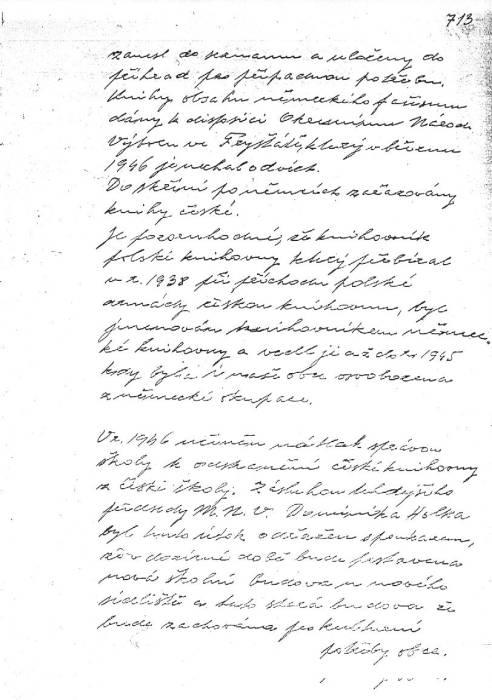 713
zanesl do seznamu a uloženy do
přihrad pro případnou potřebu.
Knihy obsahu německého fašismu
dány k disposici Okresnímu Národ.
Výboru ve Fryštátě, který v březnu
1946 je nechal odvézt.
Do skříní po němcích zařazovány
knihy české.
Je pozoruhodné, že knihovník
polské knihovny který přebíral
v r. 1938 při příchodu polské
armády českou knihovnu, byl
jmenován knihovníkem němec.
ké knihovny a vedl ji až do r. 1945
kdy byla i naše obec osvobozena
z německé okupace.
V r. 1946 učiněn nátlak správou
školy k odstranění české knihovny
z české školy. Zásluhou tehdejšího
předsedy M. N. V. Dominika
byl tento útok odražen s poukazem,
že v dozírné době bude postavena
nová školní budova u nového
sídliště a tato stará budova že
bude zachována pro kulturní
potřeby obce.